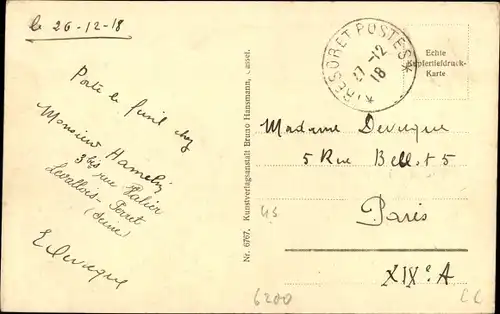 le 26-12-18
Porte le fusil chez
Monsieur Hamelin
3 bis rue
Levallois-Perret
(Seine)
E Devuque
Nr. 6767. Kunstverlagsanstalt Bruno Hansmann, Cassel.
* TRESOR ET POSTES *
27-12
18
Echte
Kupfertiefdruck-
Karte
Madame Devuque
5 Rue Bellot 5
Paris
XIXe. A
6200